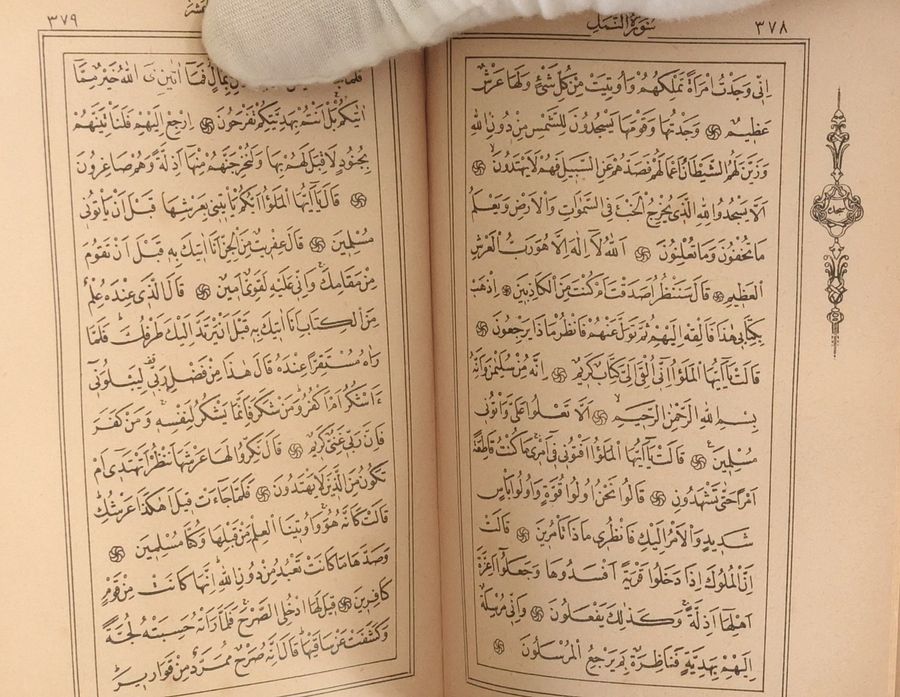 ٣٧٨
سورة النمل
اني وجدت امراة تملكهم واوتيت من كل شئ ولها عرش
عظيم ۞ وجدتها وقومها يسجدون للشمس من دون الله
وزين لهم الشيطان اعمالهم فصدهم عن السبيل فهم لا يهتدون ۞
الا يسجدوا لله الذي يخرج الخبء في السموات والارض ويعلم
ما تخفون وما تعلنون ۞ الله لا اله الا هو رب العرش
العظيم ۞ قال سننظر اصدقت ام كنت من الكاذبين ۞ اذهب
بكتابي هذا فالقه اليهم ثم تول عنهم فانظر ماذا يرجعون ۞
قالت يا ايها الملؤا اني القي الي كتاب كريم ۞ انه من سليمن وانه
بسم الله الرحمن الرحيم ۞ الا تعلوا علي واتوني
مسلمين ۞ قالت يا ايها الملؤا افتوني في امري ما كنت قاطعة
امرا حتى تشهدون ۞ قالوا نحن اولوا قوة واولوا باس
شديد والامر اليك فانظري ماذا تامرين ۞ قالت
ان الملوك اذا دخلوا قرية افسدوها وجعلوا اعزة
اهلها اذلة وكذلك يفعلون ۞ واني مرسلة
اليهم بهدية فناظرة بم يرجع المرسلون ۞
سجدة
٣٧٩
بمال فما اتين ي الله خير مما
اتيكم بل انتم بهديتكم تفرحون ۞ ارجع اليهم فلناتينهم
بجنود لا قبل لهم بها ولنخرجنهم منها اذلة وهم صاغرون
۞ قال يا ايها الملؤا ايكم ياتيني بعرشها قبل ان ياتوني
مسلمين ۞ قال عفريت من الجن انا اتيك به قبل ان تقوم
من مقامك واني عليه لقوي امين ۞ قال الذي عنده علم
من الكتاب انا اتيك به قبل ان يرتد اليك طرفك فلما
راه مستقرا عنده قال هذا من فضل ربي ليبلوني
ءاشكر ام اكفر ومن شكر فانما يشكر لنفسه ومن كفر
فان ربي غني كريم ۞ قال نكروا لها عرشها ننظر اتهتدي ام
تكون من الذين لا يهتدون ۞ فلما جاءت قيل اهكذا عرشك
قالت كانه هو واوتينا العلم من قبلها وكنا مسلمين ۞
وصدها ما كانت تعبد من دون الله انها كانت من قوم
كافرين ۞ قيل لها ادخلي الصرح فلما راته حسبته لجة
وكشفت عن ساقيها قال انه صرح ممرد من قوارير